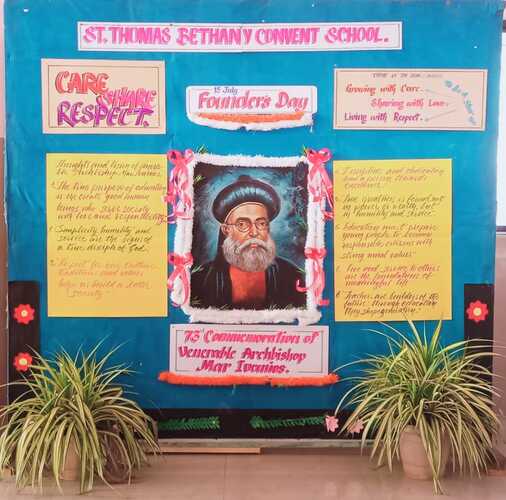 ST. THOMAS BETHANY CONVENT SCHOOL.
CARE
SHARE
RESPECT.
15 July
Founder's Day
Growing with Care.
Sharing with Love.
Living with Respect.
and vision of
1. The true purpose of education
is to create good human
beings who serve society
with love and responsibility
Simplicity, humility and
service are the signs of
a true disciple of God.
Respect for our culture,
tradition and values
helps us build a better
society
towards
excellence.
True greatness is found not
in power or wealth, but
in humility and service
Education must prepare
young people to become
responsible citizens with
strong moral values
Love and service to others
are the foundations of
meaningful life
Teachers are builders of the
future through education
they shape
73 Commemoration of
Venerable Archbishop
Mar Ivanios.